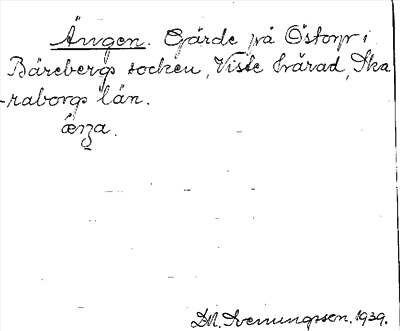 Ängen. Gärde på Östorp i
Bärebergs socken, Viste härad, Ska
-raborgs län.
æŋa.
D.A. Svenungsson. 1939.